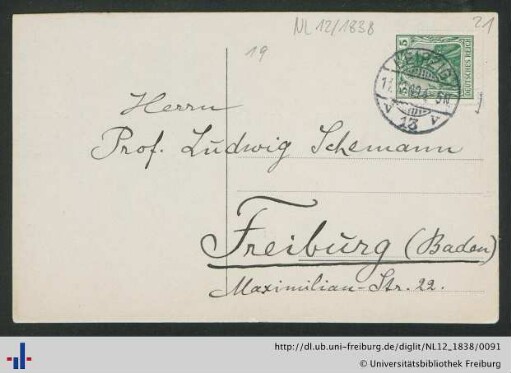 NL 12/1838
21
19
5
DEUTSCHES REICH
LEIPZIG
13
Herrn
Prof. Ludwig Schemann
Freiburg (Baden)
Maximilian-Str. 22.
http://dl.ub.uni-freiburg.de/diglit/NL12_1838/0091
© Universitätsbibliothek Freiburg